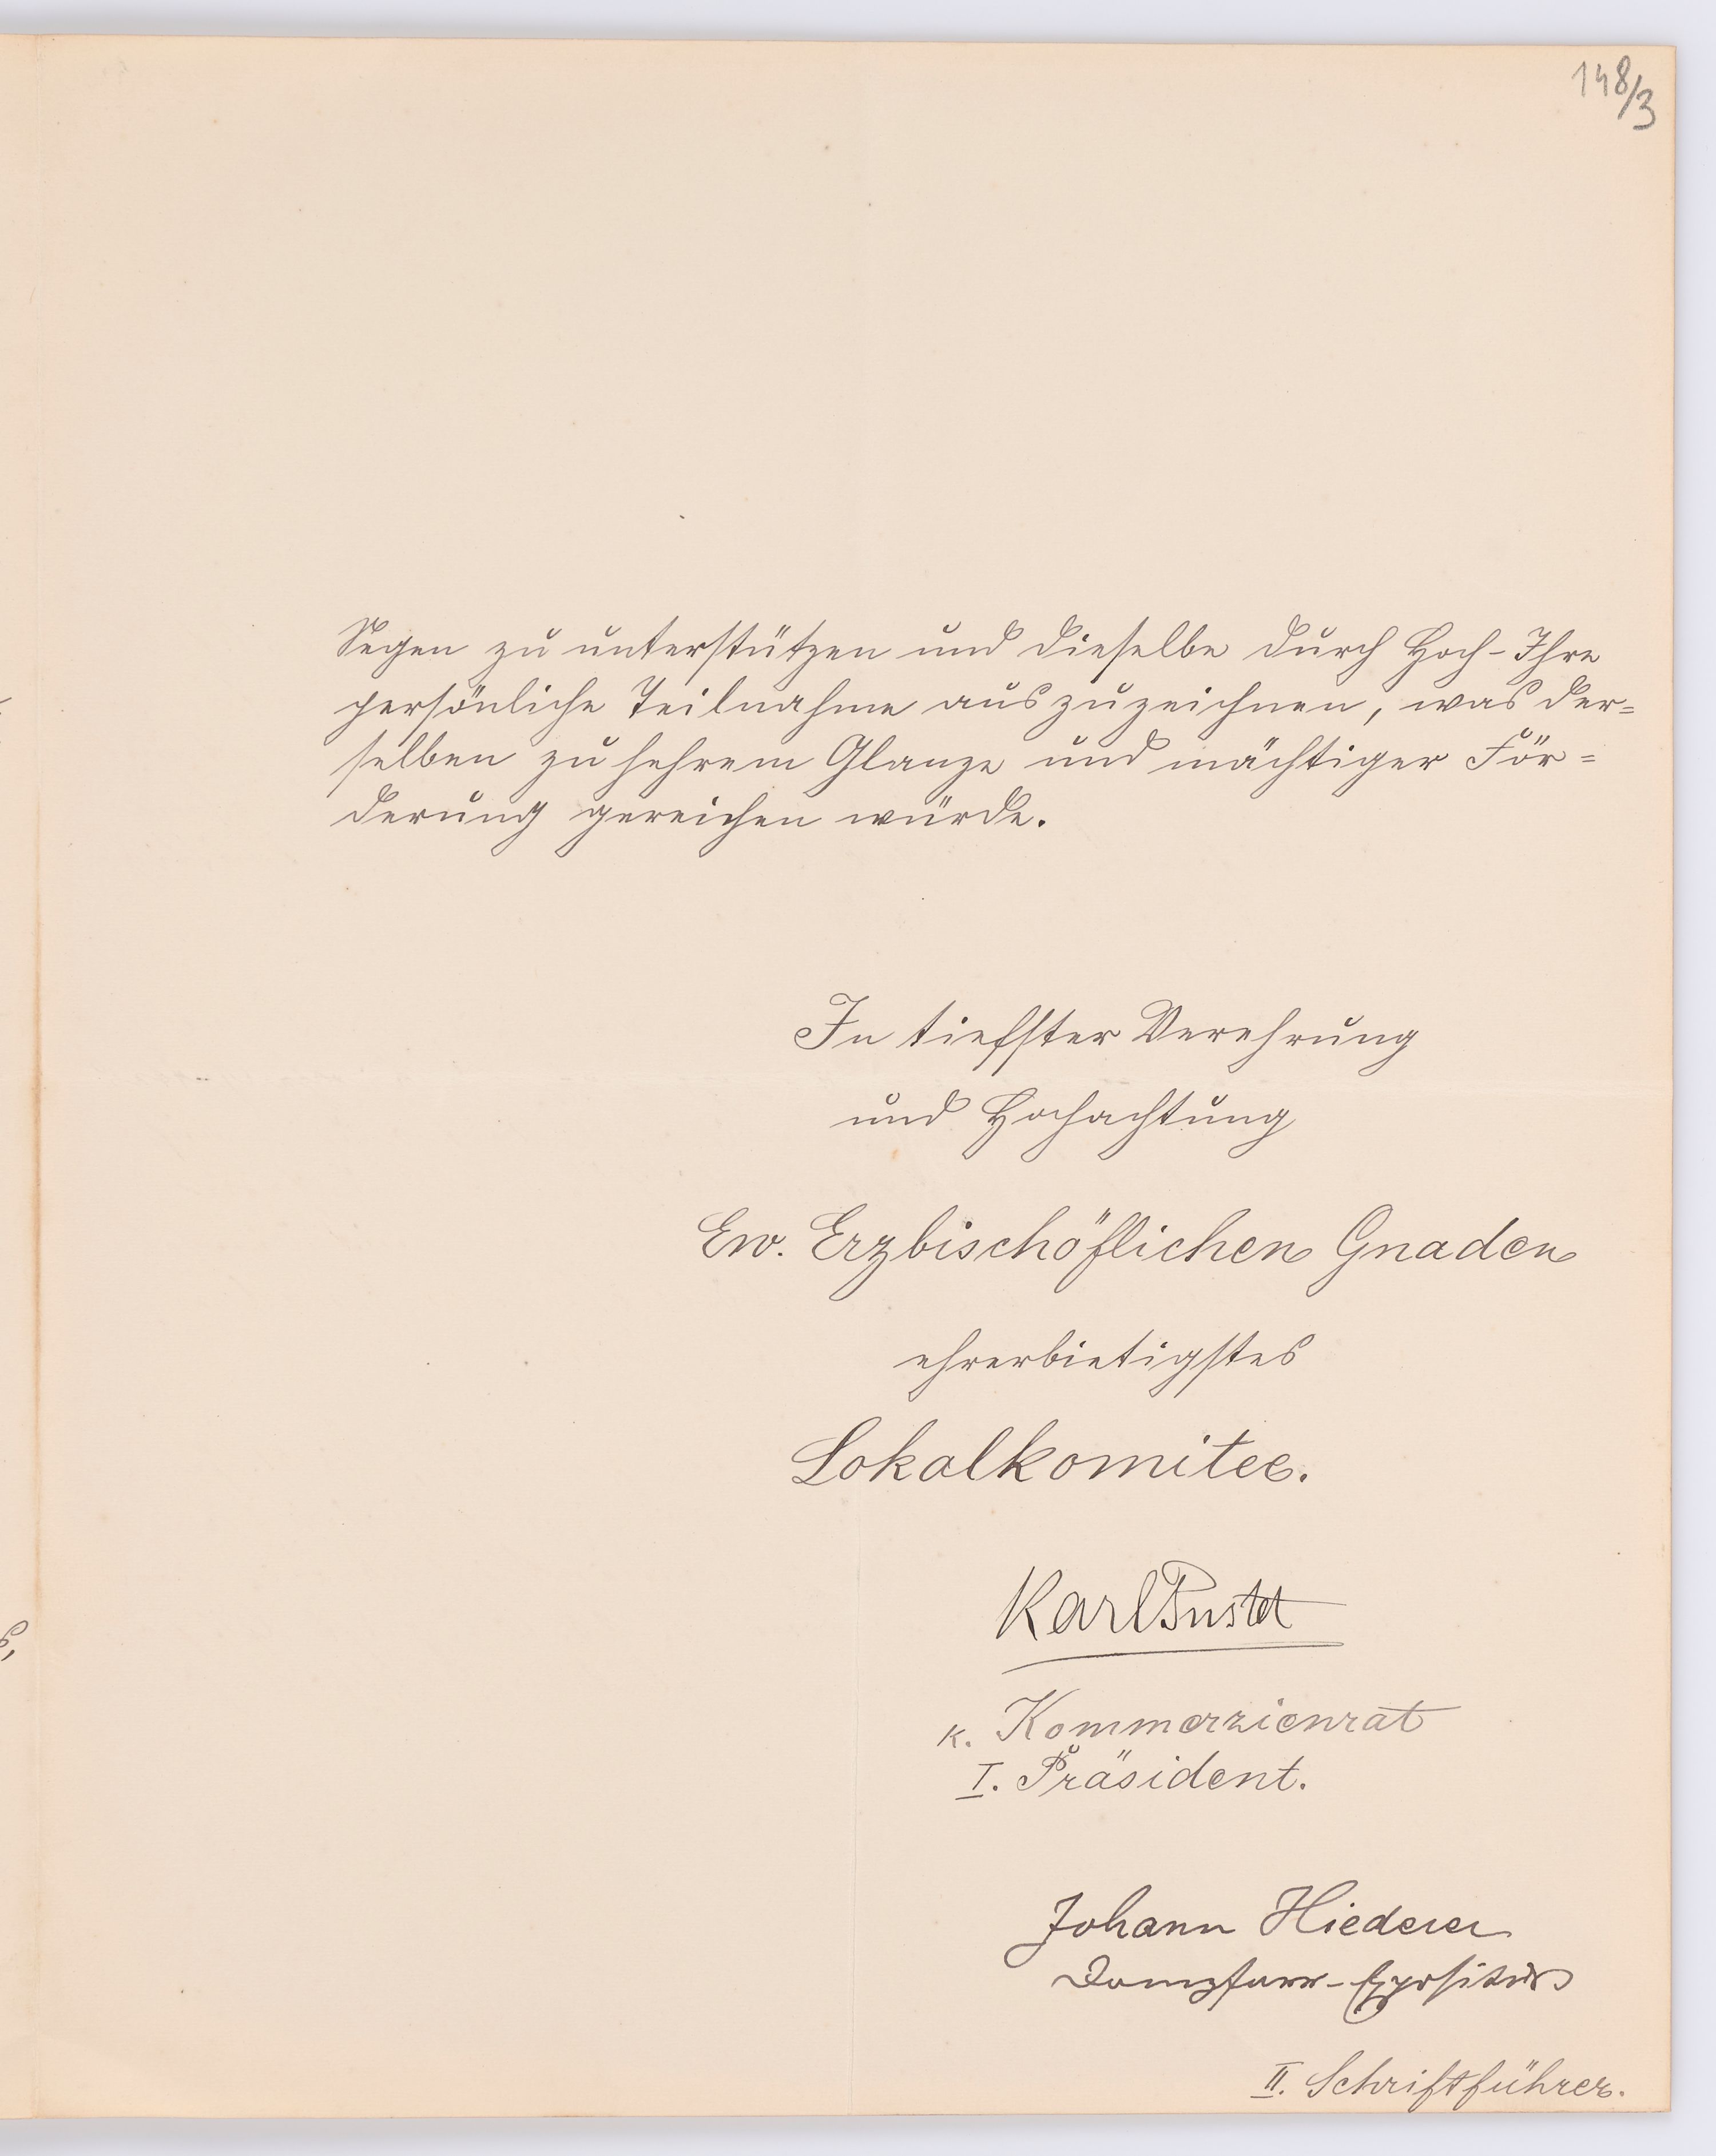 148/3
Segen zu unterstützen und dieselbe durch Hoch-Ihre
persönliche Teilnahme auszuzeichnen, was der=
selben zu hehrem Glanze und mächtiger För=
derung gereichen würde.
In tiefster Verehrung
und Hochachtung
Ew. Erzbischöflichen Gnaden
ehrerbietigstes
Lokalkomitee.
Karl Pustet
k. Kommerzienrat
I. Präsident.
Johann Hiederer
Dompfarr-Expositus
II. Schriftführer.